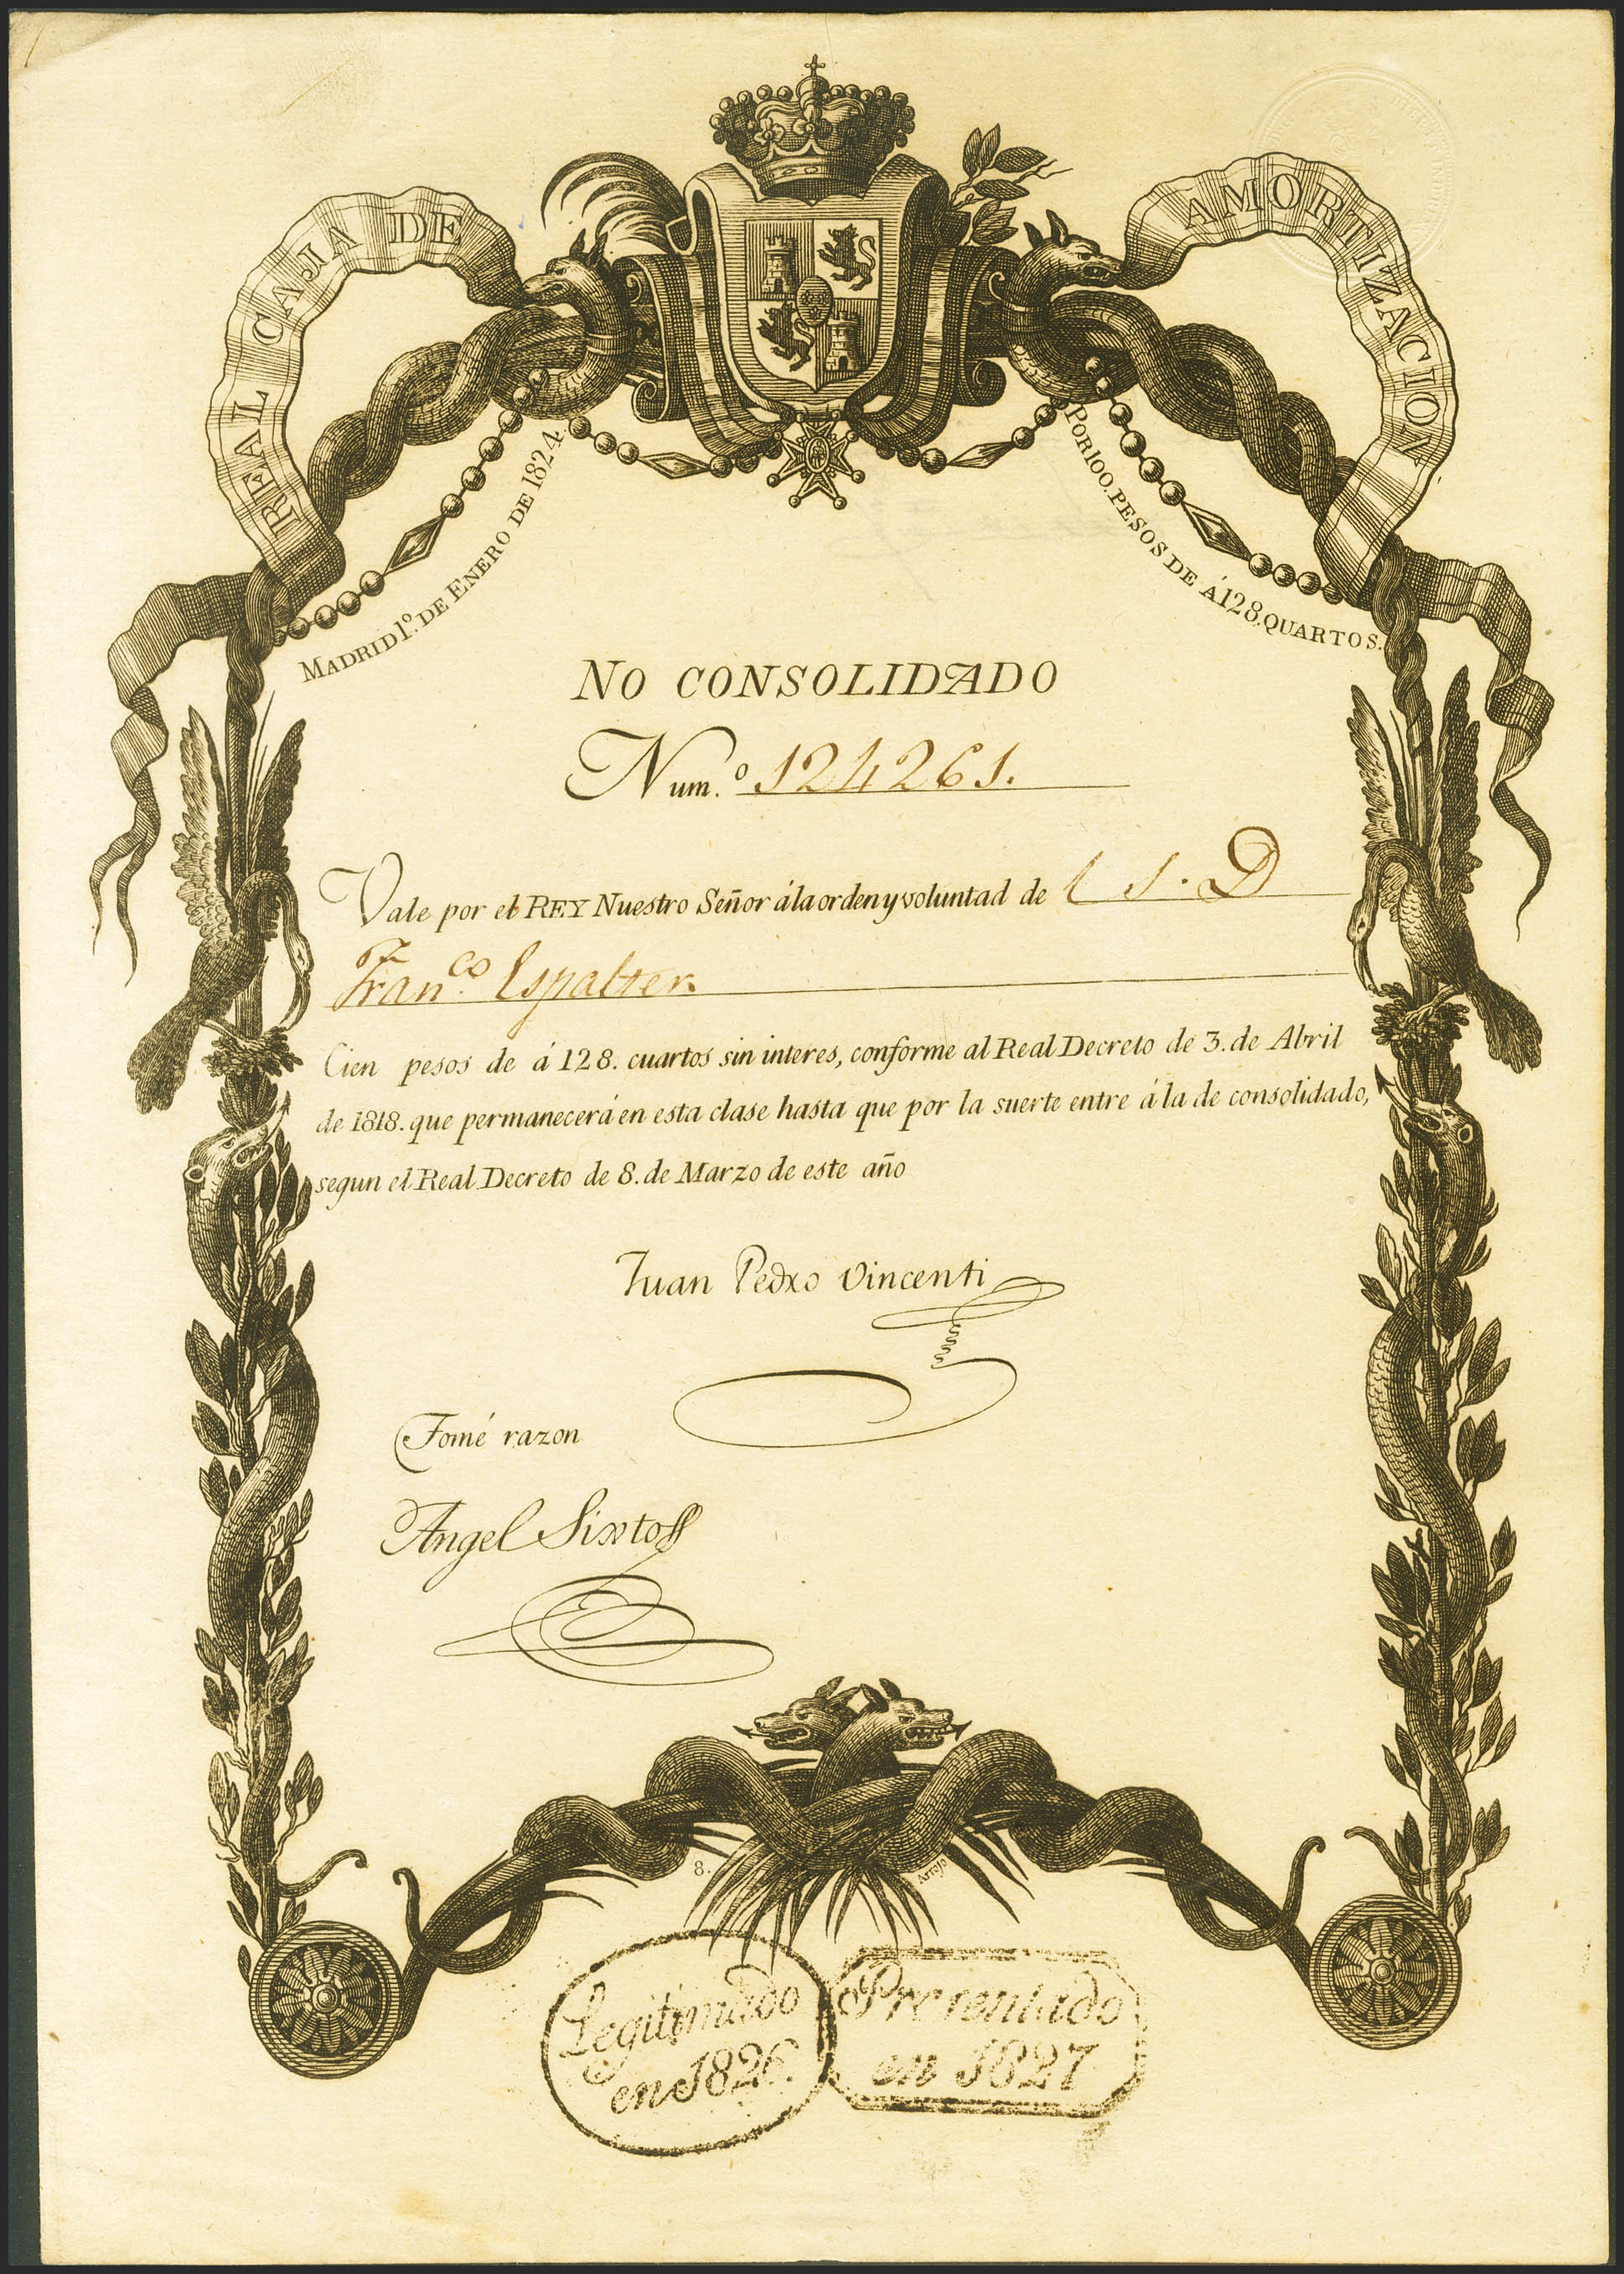 REAL CAJA DE AMORTIZACION
MADRID 1º. DE ENERO DE 1824.
POR 100. PESOS DE Á 128. QUARTOS.
NO CONSOLIDADO
Num.º 124261.
Vale por el REY Nuestro Señor á la orden y voluntad de D
Franco. Espalter.
Cien pesos de á 128. cuartos sin interes, conforme al Real Decreto de 3. de Abril
de 1818. que permanecerá en esta clase hasta que por la suerte entre á la de consolidado,
segun el Real Decreto de 8. de Marzo de este año
Juan Pedro Vincenti
Tomé razon
Angel Sixto
8.
Arrojo
Legitimado
en 1826.
Presentado
en 1827